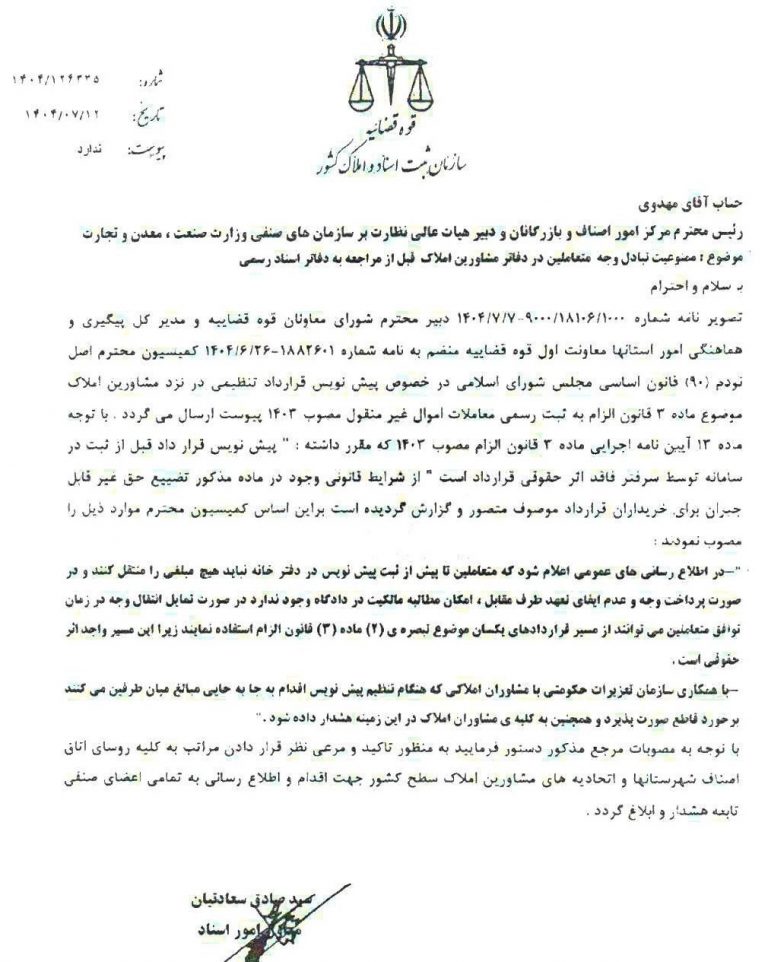 شماره: ۱۴۰۴/۱۲۴۳۳۵
تاریخ: ۱۴۰۴/۰۷/۱۲
پیوست: ندارد
قوه قضائیه
سازمان ثبت اسناد و املاک کشور
جناب آقای مهدوی
رئیس محترم مرکز امور اصناف و بازرگانان و دبیر هیات عالی نظارت بر سازمان های صنفی وزارت صنعت ، معدن و تجارت
موضوع : ممنوعیت تبادل وجه متعاملین در دفاتر مشاورین املاک قبل از مراجعه به دفاتر اسناد رسمی
با سلام و احترام
تصویر نامه شماره ۹۰۰۰/۱۸۱۰۶/۱۰۰۰-۱۴۰۴/۷/۷ دبیر محترم شورای معاونان قوه قضاییه و مدیر کل پیگیری و
هماهنگی امور استانها معاونت اول قوه قضاییه منضم به نامه شماره ۱۸۸۲۶۰۱-۱۴۰۴/۶/۲۶ کمیسیون محترم اصل
نودم (۹۰) قانون اساسی مجلس شورای اسلامی در خصوص پیش نویس قرارداد تنظیمی در نزد مشاورین املاک
موضوع ماده ۳ قانون الزام به ثبت رسمی معاملات اموال غیر منقول مصوب ۱۴۰۳ پیوست ارسال می گردد . با توجه
ماده ۱۳ آیین نامه اجرایی ماده ۳ قانون الزام مصوب ۱۴۰۳ که مقرر داشته : " پیش نویس قرار داد قبل از ثبت در
سامانه توسط سرفتر فاقد اثر حقوقی قرارداد است " از شرایط قانونی وجود در ماده مذکور تضییع حق غیر قابل
جبران برای خریداران قرارداد موصوف متصور و گزارش گردیده است براین اساس کمیسیون محترم موارد ذیل را
مصوب نمودند :
"-در اطلاع رسانی های عمومی اعلام شود که متعاملین تا پیش از ثبت پیش نویس در دفتر خانه نباید هیچ مبلغی را منتقل کنند و در
صورت پرداخت وجه و عدم ایفای تعهد طرف مقابل ، امکان مطالبه مالکیت در دادگاه وجود ندارد در صورت تمایل انتقال وجه در زمان
توافق متعاملین می توانند از مسیر قراردادهای یکسان موضوع تبصره ی (۲) ماده (۳) قانون الزام استفاده نمایند زیرا این مسیر واجد اثر
حقوقی است .
-با همکاری سازمان تعزیرات حکومتی با مشاوران املاکی که هنگام تنظیم پیش نویس اقدام به جا به جایی مبالغ میان طرفین می کنند
برخورد قاطع صورت پذیرد و همچنین به کلیه ی مشاوران املاک در این زمینه هشدار داده شود ."
با توجه به مصوبات مرجع مذکور دستور فرمایید به منظور تاکید و مرعی نظر قرار دادن مراتب به کلیه روسای اتاق
اصناف شهرستانها و اتحادیه های مشاورین املاک سطح کشور جهت اقدام و اطلاع رسانی به تمامی اعضای صنفی
تابعه هشدار و ابلاغ گردد .
سید صادق سعادتیان
معاون امور اسناد